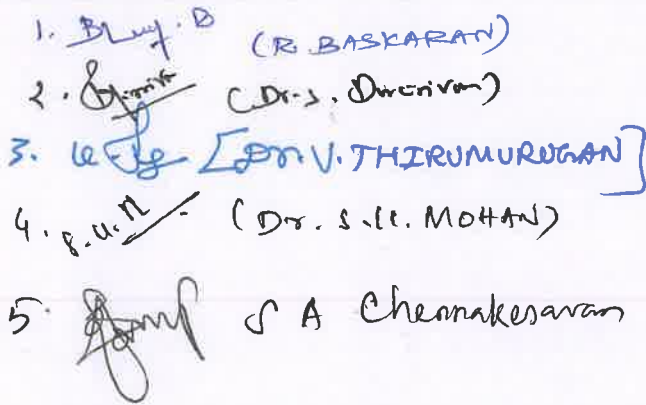 1. (R. BASKARAN)
2. (Dr. S.
3. [Dr. V. THIRUMURUGAN]
4. S.U.M (Dr. S.U. MOHAN)
5. S A Chennakesavan